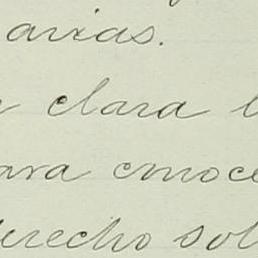 arias.
clara l
ara cnoce
derecho sol